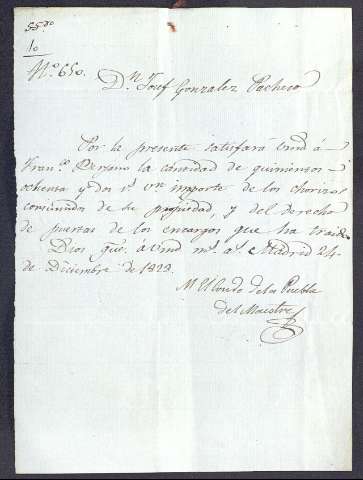 55º
10
Nº. 650.
Dn. Josef Gonzalez Pacheco
Por la presente satisfará Vmd á
Franco. la cantidad de quinientos
ochenta y dos rs. vn importe de los chorizos
consumidos de su propiedad, y del derecho
de puertas de los encargos que ha traido
Dios gue. á Vmd ms. as. Madrid 24
de Diciembre de 1822.
El Conde de la Puebla
del Maestre